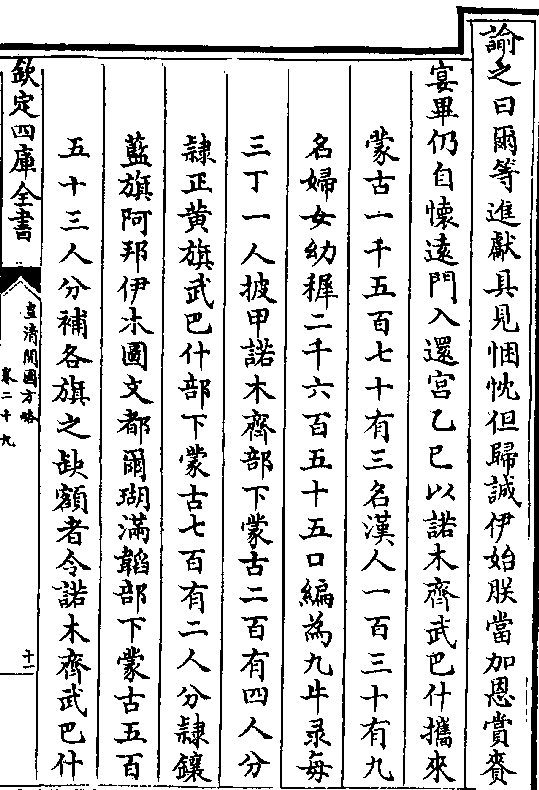 諭之曰爾等進獻具見悃忱但歸誠伊始朕當加恩賞賚
宴畢仍自懷遠門入還宮乙巳以諾木齊武巴什攜來
蒙古一千五百七十有三名漢人一百三十有九
名婦女幼穉二千六百五十五口編為九牛彔每
三丁一人披甲諾木齊部下蒙古二百有四人分
隸正黃旗武巴什部下蒙古七百有二人分隸鑲
藍旗阿邦伊木圖文都爾瑚滿韜部下蒙古五百
五十三人分補各旗之缺額者令諾木齊武巴什
欽定四庫全書
皇清開國方略
卷二十九
十一